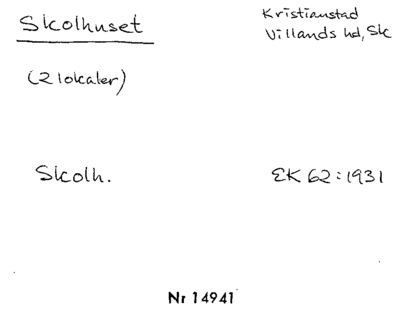 Skolhuset
Kristianstad
Villands hd, Sk
(2 lokaler)
Skolh.
EK 62:1931
Nr 14941